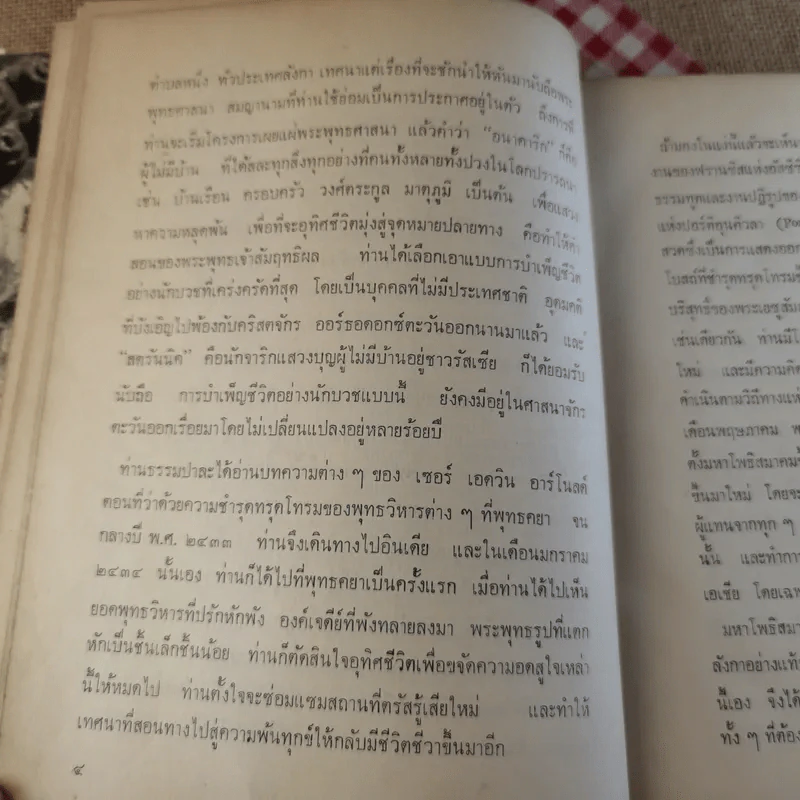 ตำบลหนึ่ง ทั่วประเทศลังกา เทศนาแต่เรื่องที่จะชักนำให้หันมานับถือพระ
พุทธศาสนา สมญานามที่ท่านใช้ย่อมเป็นการประกาศอยู่ในตัว ถึงการที่
ท่านจะเริ่มโครงการเผยแผ่พระพุทธศาสนา แล้วคำว่า “อนาคาริก” ก็คือ
ผู้ไม่มีบ้าน ที่ได้สละทุกสิ่งทุกอย่างที่คนทั้งหลายทั้งปวงในโลกปรารถนา
เช่น บ้านเรือน ครอบครัว วงศ์ตระกูล มาตุภูมิ เป็นต้น เพื่อแสวง
หาความหลุดพ้น เพื่อที่จะอุทิศชีวิตมุ่งสู่จุดหมายปลายทาง คือทำให้คำ
สอนของพระพุทธเจ้าสัมฤทธิผล ท่านได้เลือกเอาแบบการบำเพ็ญชีวิต
อย่างนักบวชที่เคร่งครัดที่สุด โดยเป็นบุคคลที่ไม่มีประเทศชาติ อุดมคติ
ที่บังเอิญไปพ้องกับคริสตจักร ออร์ธอดอกซ์ตะวันออกนานมาแล้ว และ
“สตรันนิค” คือนักจาริกแสวงบุญผู้ไม่มีบ้านอยู่ชาวรัสเซีย ก็ได้ยอมรับ
นับถือ การบำเพ็ญชีวิตอย่างนักบวชแบบนี้ ยังคงมีอยู่ในศาสนาจักร
ตะวันออกเรื่อยมาโดยไม่เปลี่ยนแปลงอยู่หลายร้อยปี
ท่านธรรมปาละได้อ่านบทความต่าง ๆ ของ เซอร์ เอดวิน อาร์โนลด์
ตอนที่ว่าด้วยความชำรุดทรุดโทรมของพุทธวิหารต่าง ๆ ที่พุทธคยา จน
กลางปี พ.ศ. ๒๔๓๓ ท่านจึงเดินทางไปอินเดีย และในเดือนมกราคม
๒๔๓๔ นั้นเอง ท่านก็ได้ไปที่พุทธคยาเป็นครั้งแรก เมื่อท่านได้ไปเห็น
ยอดพุทธวิหารที่ปรักหักพัง องค์เจดีย์ที่พังทลายลงมา พระพุทธรูปที่แตก
หักเป็นชิ้นเล็กชิ้นน้อย ท่านก็ตัดสินใจอุทิศชีวิตเพื่อขจัดความอดสูใจเหล่า
นี้ให้หมดไป ท่านตั้งใจจะซ่อมแซมสถานที่ตรัสรู้เสียใหม่ และทำให้
เทศนาที่สอนทางไปสู่ความพ้นทุกข์ให้กลับมีชีวิตชีวาขึ้นมาอีก
๔
ล้วมคงโนแง่นี้แล้วจะเห็น
งานของฟรานซิสแห่งอัสซีซี
ธรรมทูตและงานปฏิรูปของ
แห่งปอร์ติอุนคิวลา
สวดซึ่งเป็นการแสดงออก
โบสถ์ที่ชำรุดทรุดโทรม
บริสุทธิ์ของพระเยซู
เช่นเดียวกัน ท่านมี
ใหม่ และมีความคิด
ดำเนินตามวิถีทางแห่ง
เดือนพฤษภาคม
ตั้งมหาโพธิสมาคม
ขึ้นมาใหม่ โดยจะ
ผู้แทนจากทุก ๆ
นั้น และทำการ
เอเซีย โดยเฉพ
มหาโพธิสมา
ลังกาอย่างแท้
นี้เอง จึงได้
ทั้ง ๆ ที่ต้อง